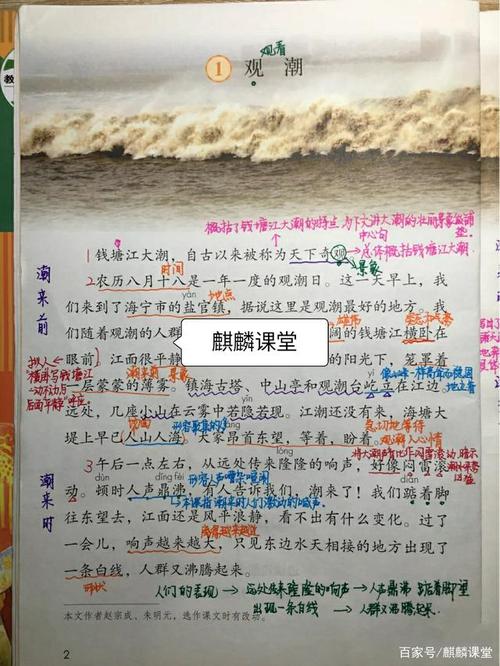 观看
1 观 潮
概括了钱塘江大潮的特点 为下文讲大潮的壮丽景象做铺垫
中心句
1 钱塘江大潮，自古以来被称为天下奇观。
总体概括钱塘江大潮
时间
景象
2 农历八月十八是一年一度的观潮日。这一天早上，我
yán
地点
们来到了海宁市的盐官镇，据说这里是观潮最好的地方。我
潮来前
们随着观潮的人群
阔的钱塘江横卧在
雄伟
麒麟课堂
眼前。江面很平静
的阳光下，笼罩着
拟人
一层蒙蒙的薄雾。镇海古塔、中山亭和观潮台屹立在江边。
yì
远处，几座小山在云雾中若隐若现。江潮还没有来，海塘大
急切地等待
堤上早已人山人海。大家昂首东望，等着，盼着。
观潮人心情
3 午后一点左右，从远处传来隆隆的响声，好像闷雷滚
潮来时
dùn
dǐng fèi
diǎn
动。顿时人声鼎沸，有人告诉我们，潮来了！我们踮着脚
往东望去，江面还是风平浪静，看不出有什么变化。过了
一会儿，响声越来越大，只见东边水天相接的地方出现了
一条白线，人群又沸腾起来。
形状
人们的表现
远处传来隆隆的响声
人声鼎沸
踮着脚望
出现一条白线
人群又沸腾起来
本文作者赵宗成、朱明元，选作课文时有改动。
2
百家号/麒麟课堂